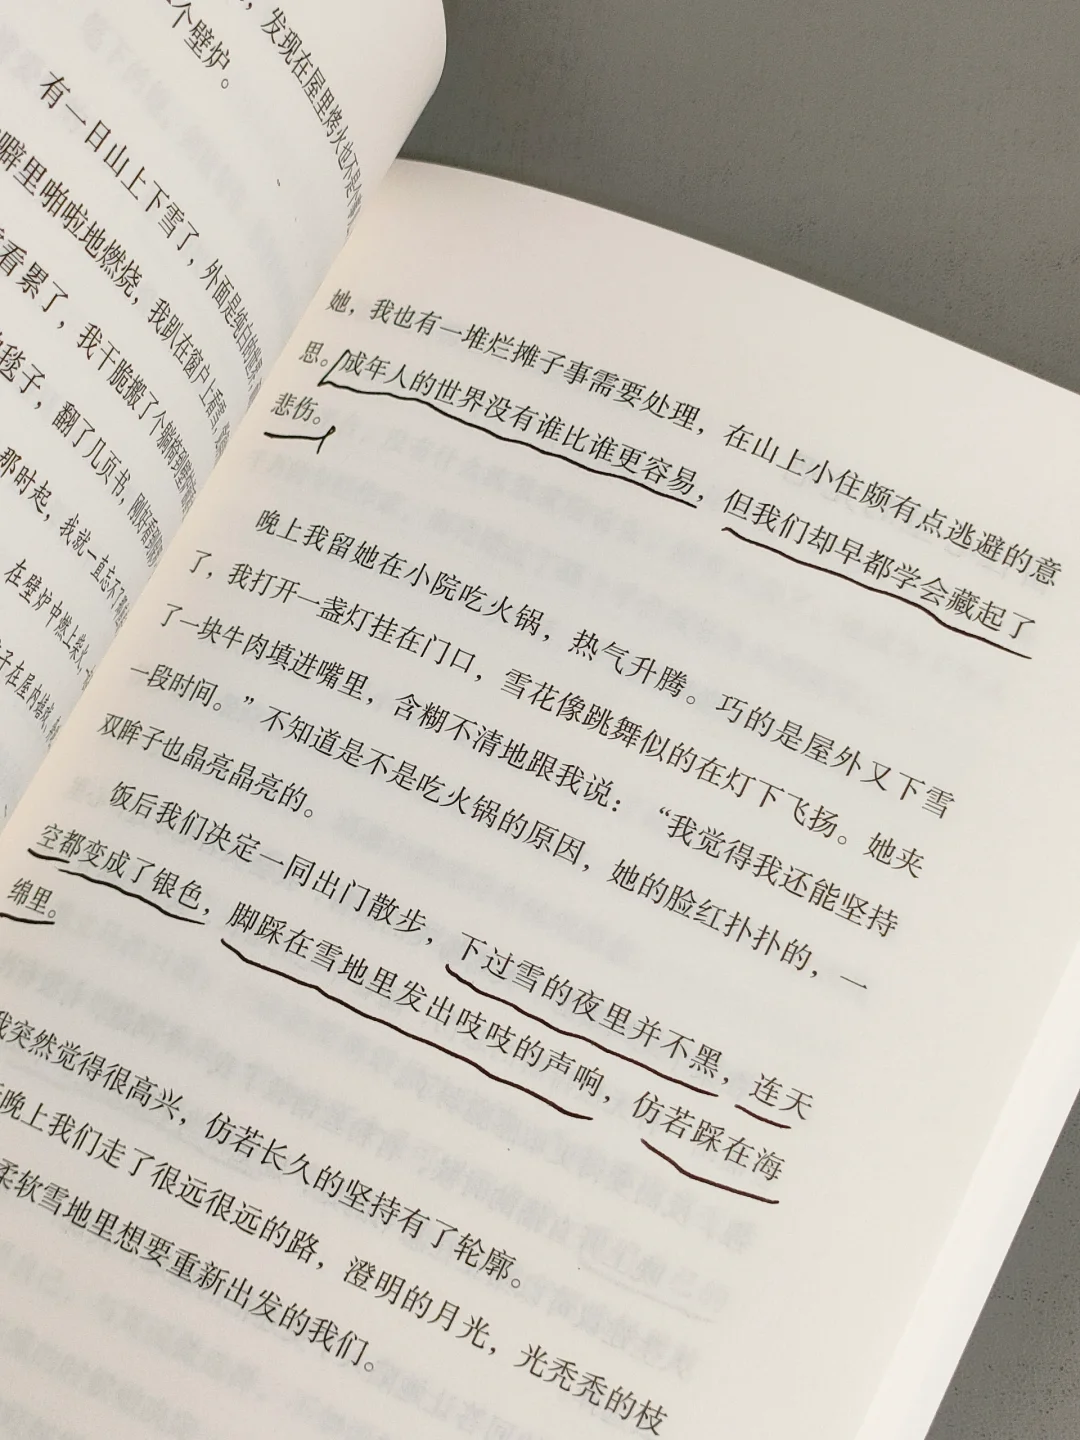 ，发现在屋里烤火也不是
个壁炉。
有一日山上下雪了，外面是纯白的
噼里啪啦地燃烧，我趴在窗户上看
看累了，我干脆搬了个躺椅到
毯子，翻了几页书，刚好看到
那时起，我就一直忘不了
在壁炉中燃上柴火，
子在屋内嬉戏，
她，我也有一堆烂摊子事需要处理，在山上小住颇有点逃避的意
思。成年人的世界没有谁比谁更容易，但我们却早都学会藏起了
悲伤。
晚上我留她在小院吃火锅，热气升腾。巧的是屋外又下雪
了，我打开一盏灯挂在门口，雪花像跳舞似的在灯下飞扬。她夹
了一块牛肉填进嘴里，含糊不清地跟我说：“我觉得我还能坚持
一段时间。”不知道是不是吃火锅的原因，她的脸红扑扑的，一
双眸子也晶亮晶亮的。
饭后我们决定一同出门散步，下过雪的夜里并不黑，连天
空都变成了银色，脚踩在雪地里发出吱吱的声响，仿若踩在海
绵里。
我突然觉得很高兴，仿若长久的坚持有了轮廓。
晚上我们走了很远很远的路，澄明的月光，光秃秃的枝
柔软雪地里想要重新出发的我们。